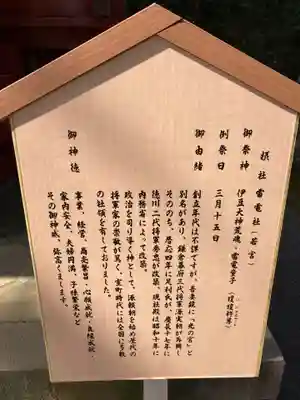 摂社 雷電社(若宮)
御祭神 伊豆大神荒魂・雷電童子
(瓊瓊杵尊)
例祭日 三月十五日
御由緒 創立年代は不詳ですが、吾妻鏡に「光の宮」と
別名があり、鎌倉幕府三代将軍源実朝が再興し
そののち、暦応四年に足利氏が、慶長十七年に
徳川二代将軍秀忠が改築、現社殿は昭和十年に
内務省によって改築。
政治を司り導く神として、源頼朝を始め歴代の
将軍家の崇敬が篤く、室町時代には全国に数
の社領を有しておりました。
御神徳 事業、経営、商売繁昌・心願成就・良縁成就・
家内安全、夫婦円満、子孫繁栄など
その御神威、弥高くまします。